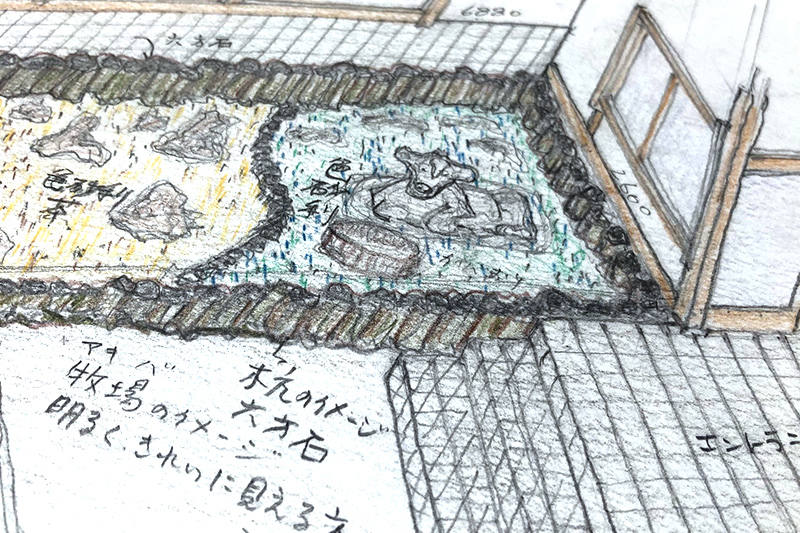 6880
六方石
色砂利
茶
色
砂
利
2600
マキバ
牧場のイメージ
明るく、きれいに見える
杭のイメージ
六方石
エントラン